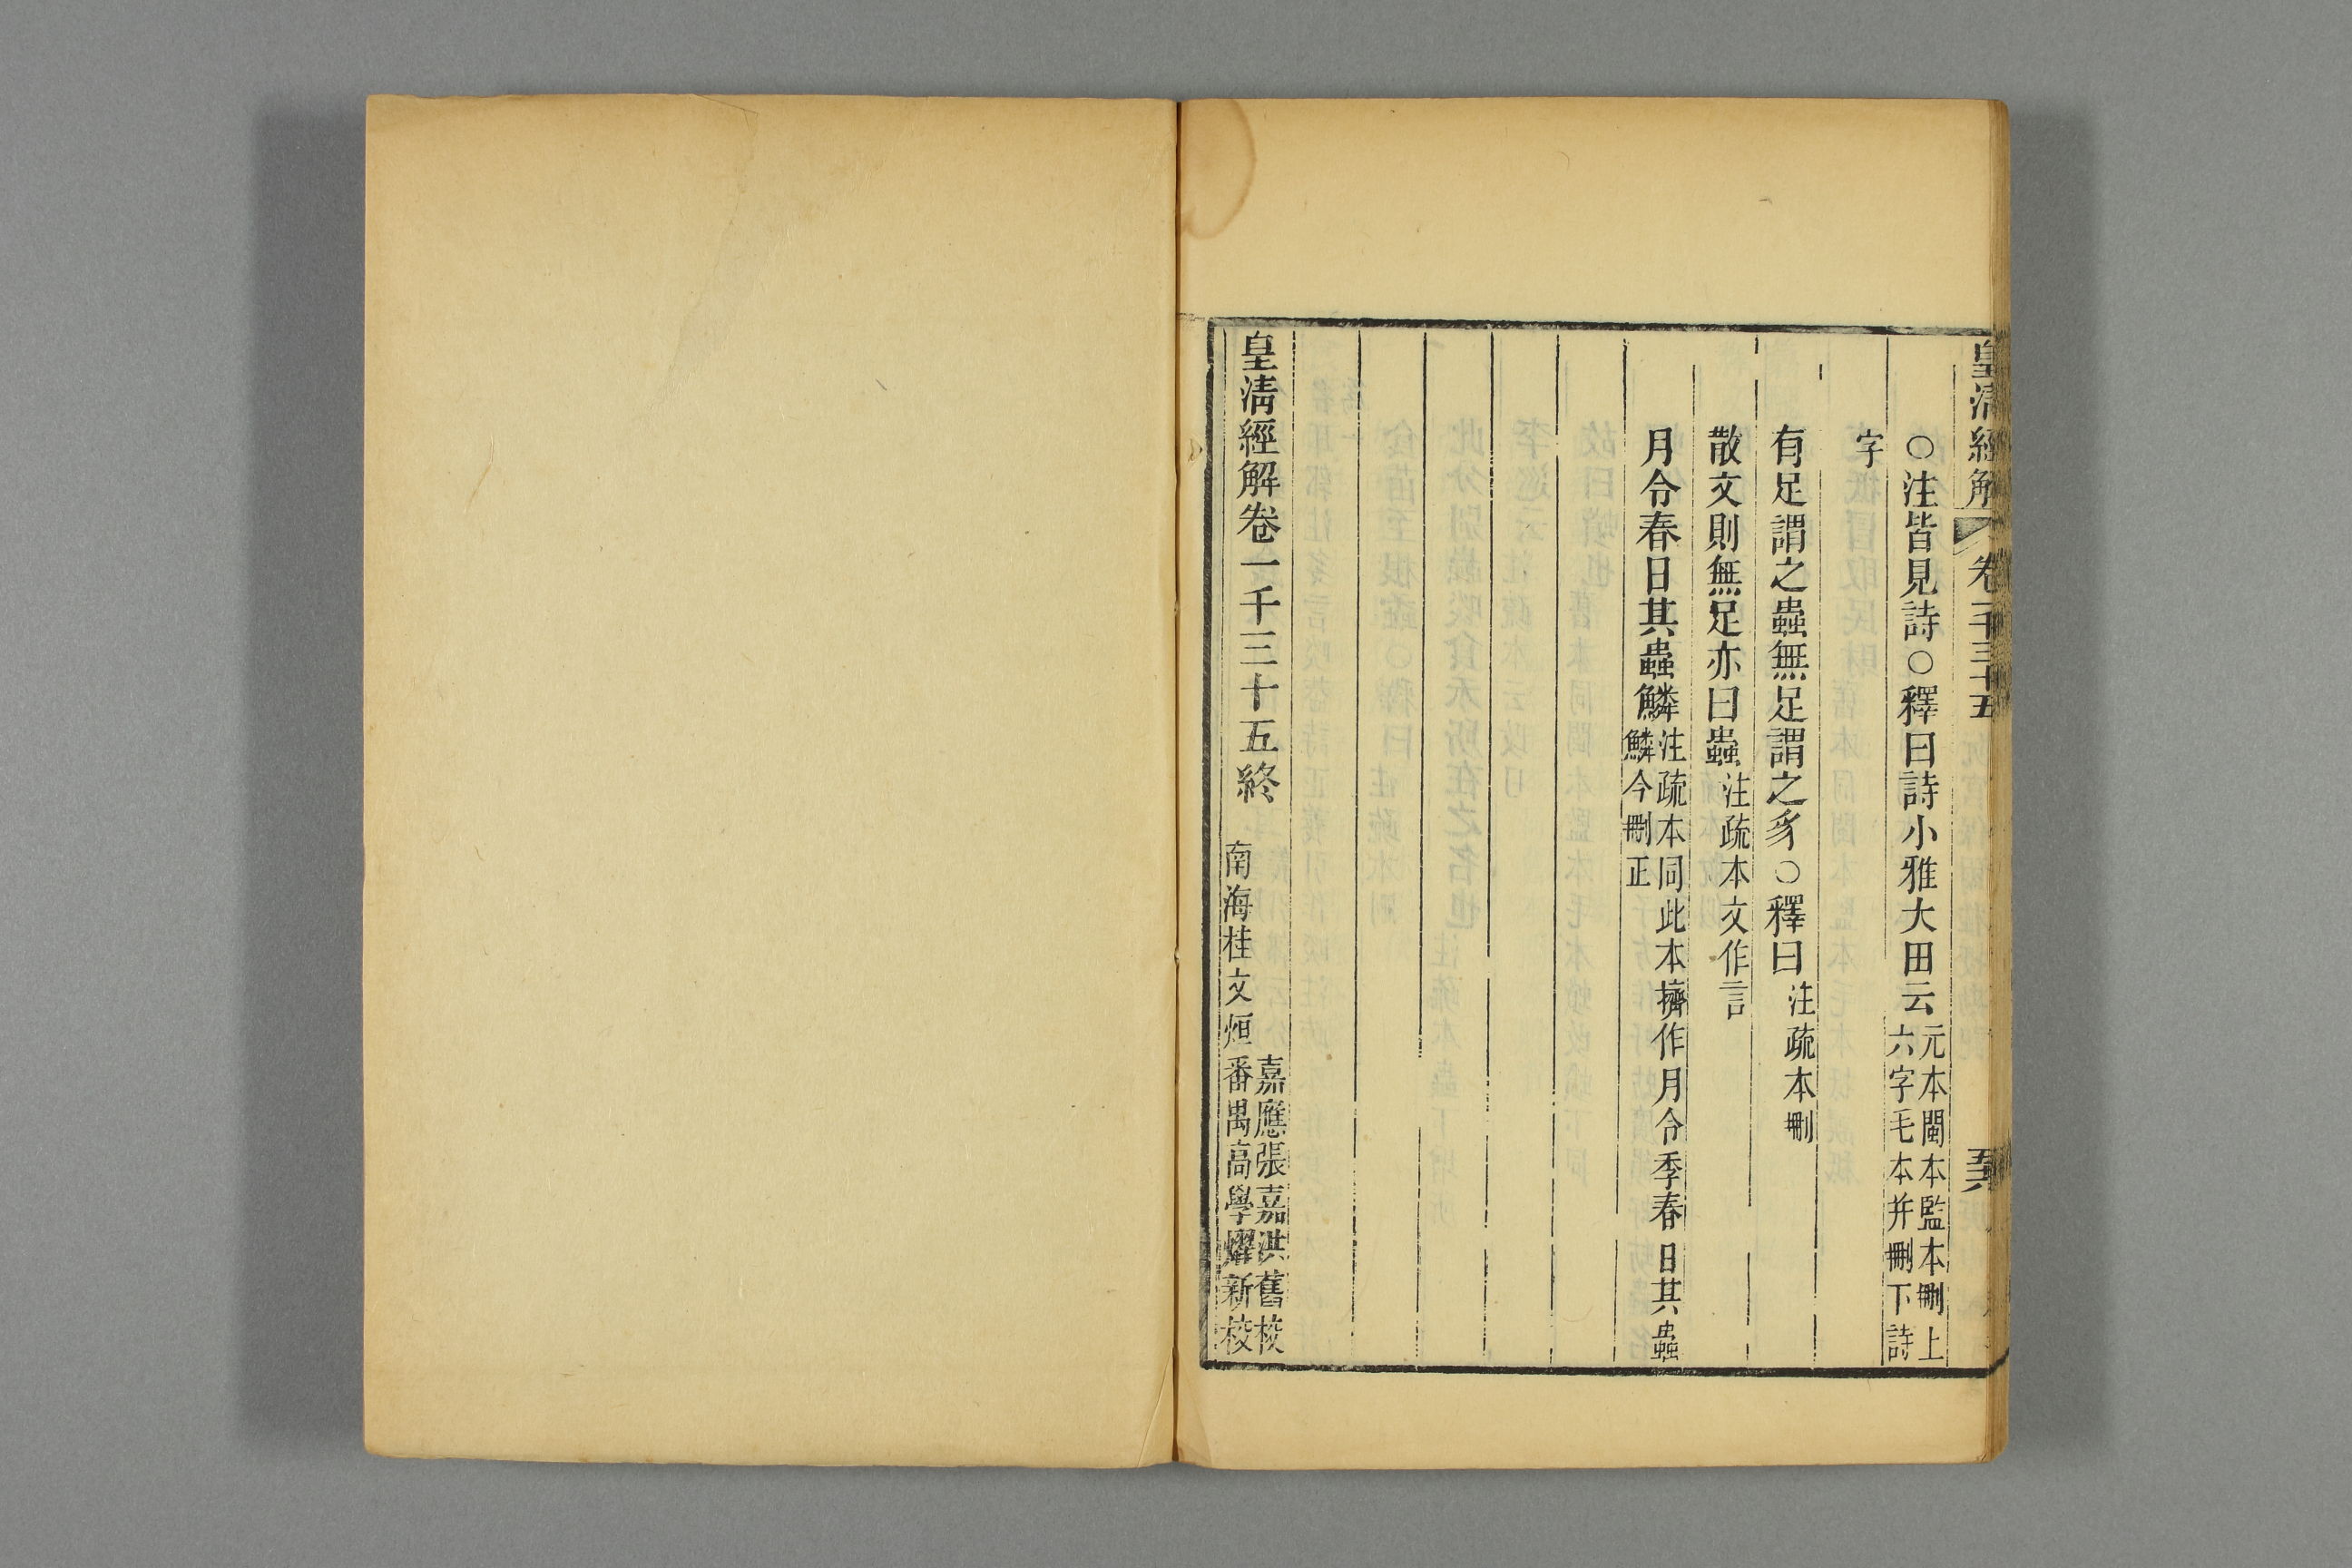 皇清經解 卷一千三十五 五十六
○注皆見詩○釋曰詩小雅大田云元本閩本監本刪上六字毛本并刪下詩
字
有足謂之蟲無足謂之豸○釋曰注疏本刪
散文則無足亦曰蟲注疏本文作言
月令春日其蟲鱗注疏本同此本擠作月令季春日其蟲鱗今刪正
皇清經解卷一千三十五終 南海桂文烜 嘉應張嘉洪舊校 番禺高學燿新校